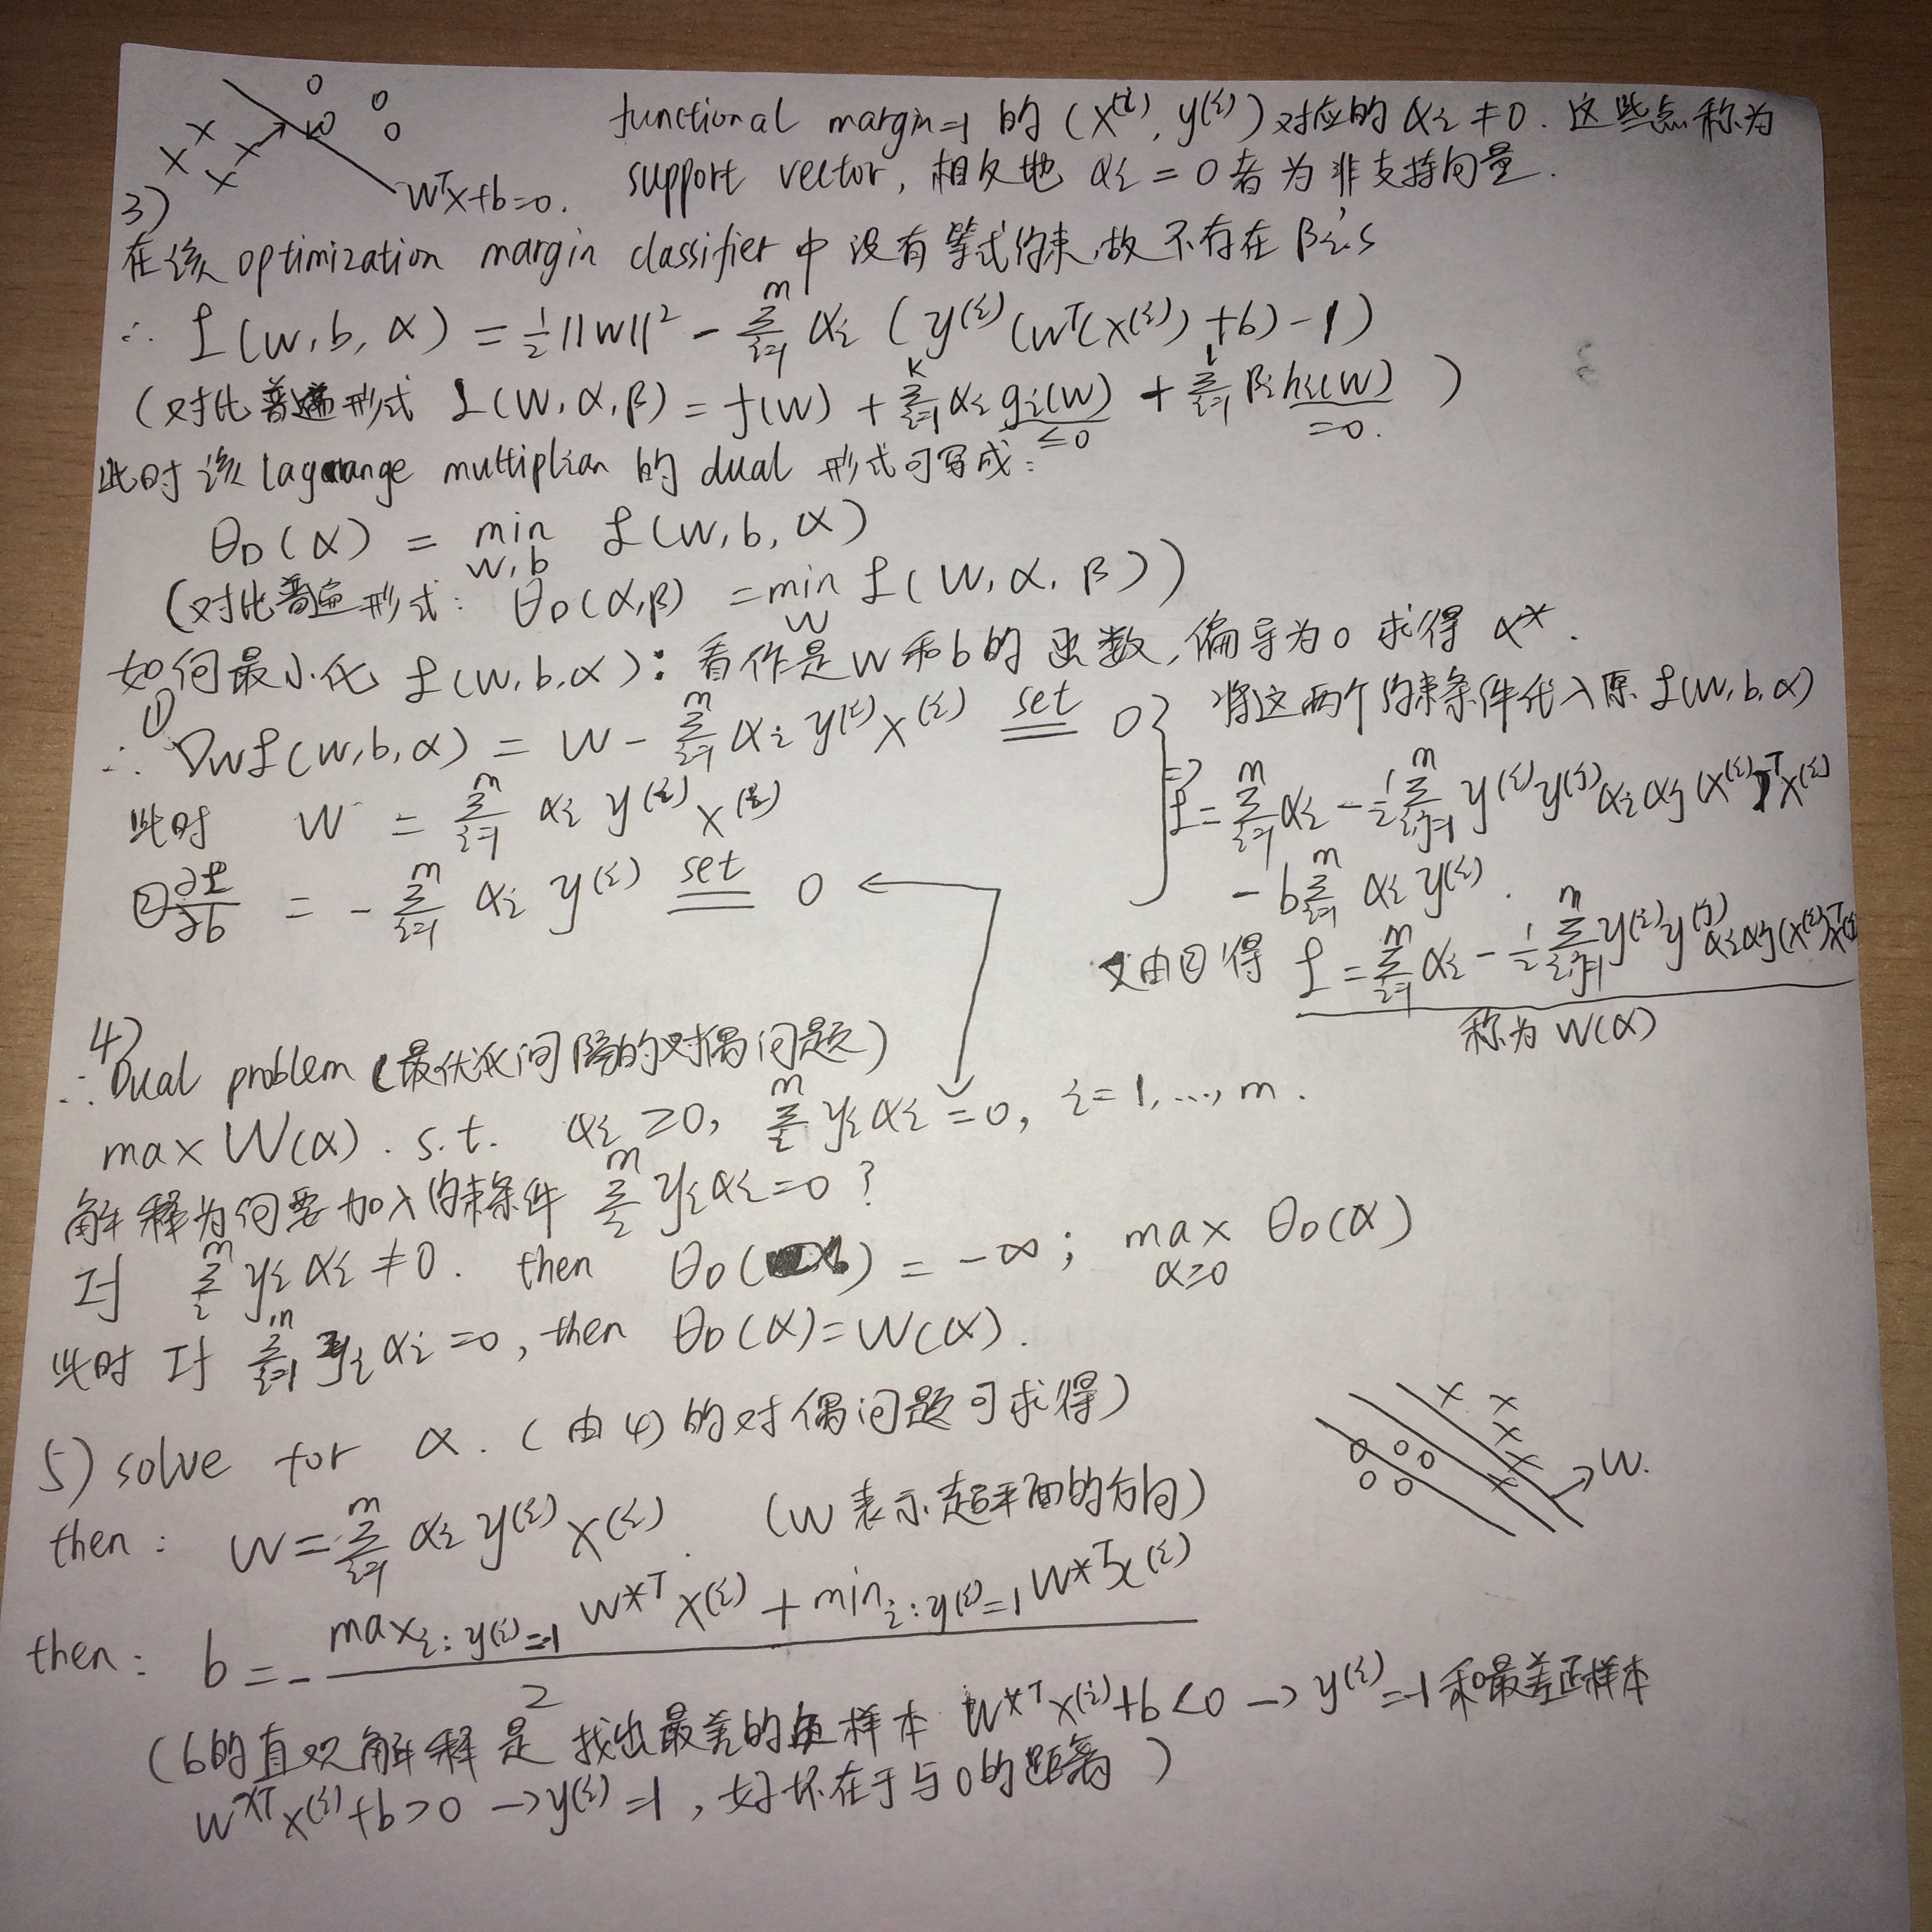 functional margin=1 的 (x⁽ⁱ⁾, y⁽ⁱ⁾) 对应的 αᵢ ≠ 0. 这些点称为
wᵀx+b=0. support vector, 相反地 αᵢ = 0 者为非支持向量.
3)
在该 optimization margin classifier 中 没有等式约束,故不存在 βᵢ's
∴ ℒ(w, b, α) = ½||w||² - Σᵢ₌₁ᵐ αᵢ (y⁽ⁱ⁾(wᵀ(x⁽ⁱ⁾) + b) - 1)
(对比普遍形式 ℒ(w, α, β) = f(w) + Σᵢ₌₁ᵏ αᵢ gᵢ(w) + Σᵢ₌₁ˡ βᵢ hᵢ(w) )
≤0 =0.
此时该 lagrange multiplian 的 dual 形式可写成:
θ_D(α) = min_{w,b} ℒ(w, b, α)
(对比普遍形式: θ_D(α,β) = min_w ℒ(w, α, β))
如何最小化 ℒ(w,b,α): 看作是 w 和 b 的函数, 偏导为0 求得 α*.
∴ ① ∇wℒ(w,b,α) = w - Σᵢ₌₁ᵐ αᵢ y⁽ⁱ⁾x⁽ⁱ⁾ set 0
此时 w = Σᵢ₌₁ᵐ αᵢ y⁽ⁱ⁾ x⁽ⁱ⁾
② ∂ℒ/∂b = - Σᵢ₌₁ᵐ αᵢ y⁽ⁱ⁾ set 0 ←
将这两个约束条件代入原 ℒ(w,b,α)
⇒ ℒ = Σᵢ₌₁ᵐ αᵢ - ½ Σᵢ,ⱼ₌₁ᵐ y⁽ⁱ⁾y⁽ʲ⁾αᵢαⱼ(x⁽ⁱ⁾)ᵀx⁽ⁱ⁾
- b Σᵢ₌₁ᵐ αᵢ y⁽ⁱ⁾.
又由②得 ℒ = Σᵢ₌₁ᵐ αᵢ - ½ Σᵢ,ⱼ₌₁ᵐ y⁽ⁱ⁾y⁽ʲ⁾αᵢαⱼ(x⁽ⁱ⁾)ᵀx
称为 W(α)
4)
∴ Dual problem (最优化间隔的对偶问题)
max W(α). s.t. αᵢ ≥ 0, Σᵢᵐ yᵢαᵢ = 0, i = 1, ..., m.
解释为何要加入约束条件 Σᵢᵐ yᵢαᵢ = 0 ?
对 Σᵢᵐ yᵢαᵢ ≠ 0. then θ_D( ) = -∞; max_{α≥0} θ_D(α)
此时 对 Σᵢ₌₁ᵐ yᵢαᵢ = 0, then θ_D(α) = W(α).
5) solve for α. (由4)的对偶问题可求得)
then: w = Σᵢ₌₁ᵐ αᵢ y⁽ⁱ⁾ x⁽ⁱ⁾. (w 表示超平面的方向)
w.
then: b = - (max_{i: y⁽ⁱ⁾=-1} w*ᵀx⁽ⁱ⁾ + min_{i: y⁽ⁱ⁾=1} w*ᵀx⁽ⁱ⁾) / 2
(b的直观解释是 找出最差的负样本 w*ᵀx⁽ⁱ⁾+b<0 → y⁽ⁱ⁾=-1 和最差正样本
w*ᵀx⁽ⁱ⁾+b>0 → y⁽ⁱ⁾=1, 好坏在于与0的距离)